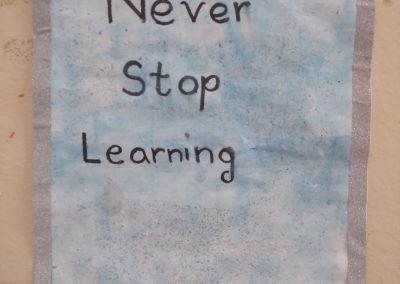 Never
Stop
Learning